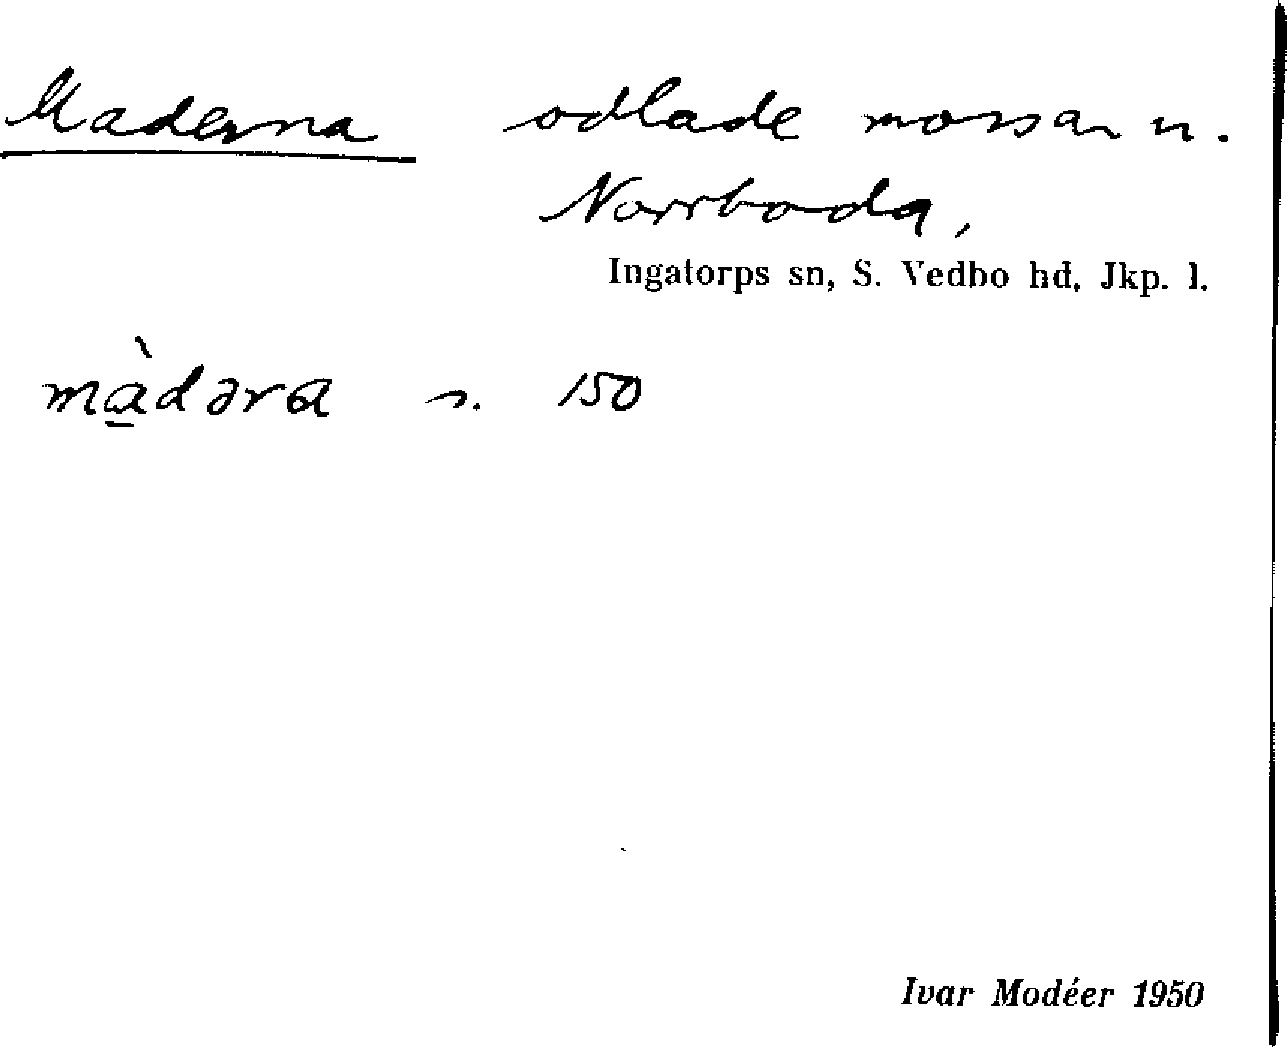 Maderna odlade mossar u.
Norrboda,
Ingatorps sn, S. Vedbo hd, Jkp. l.
mà̠dəra s. 150
Ivar Modéer 1950